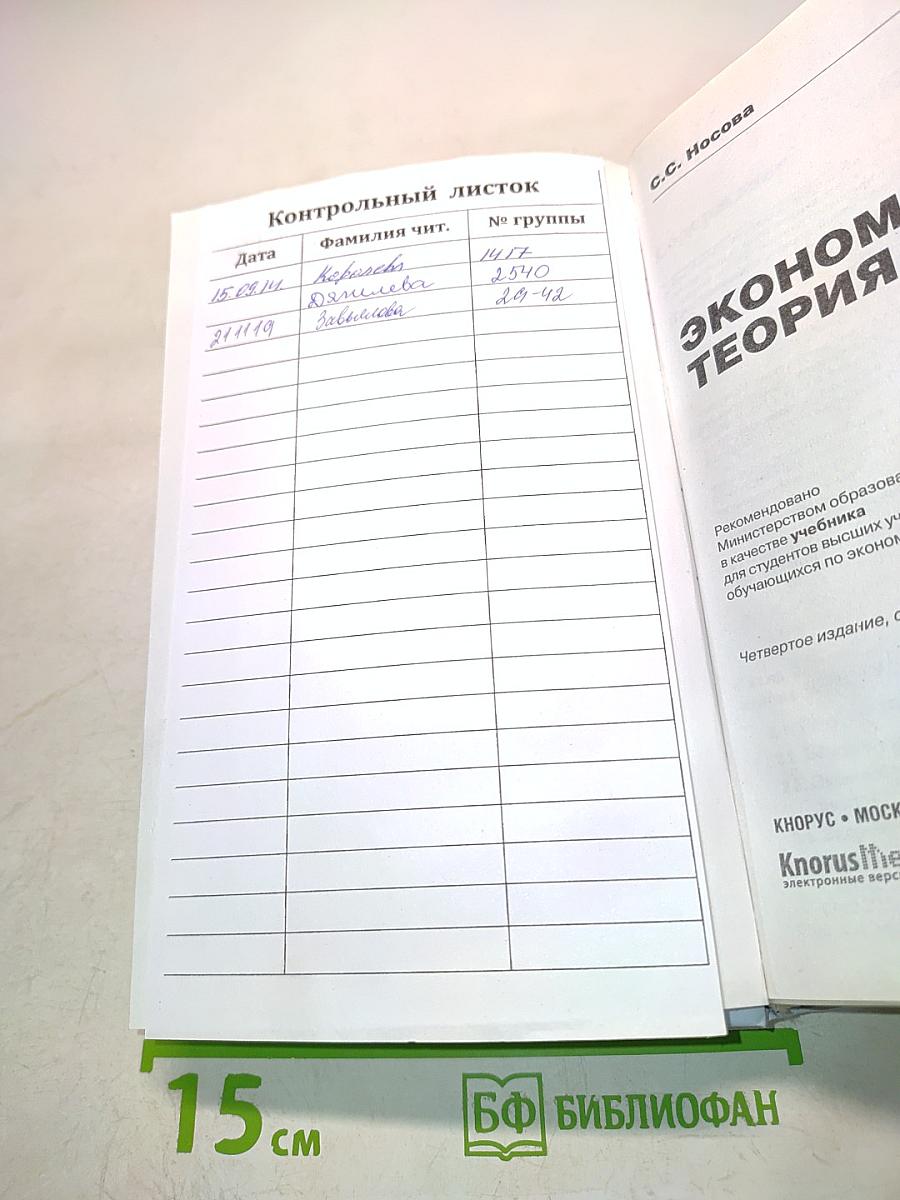 Контрольный листок
Дата Фамилия чит. № группы
15.09.14 Королева 1417
Данилева 2540
21 11 19 Завьялова 2Э-42
С.С. Носова
ЭКОНОМ
ТЕОРИЯ
Рекомендовано
Министерством образова
в качестве учебника
для студентов высших уч
обучающихся по эконом
Четвертое издание, с
КНОРУС • МОСК
Knorus the
электронные верс
15 см
БФ БИБЛИОФАН